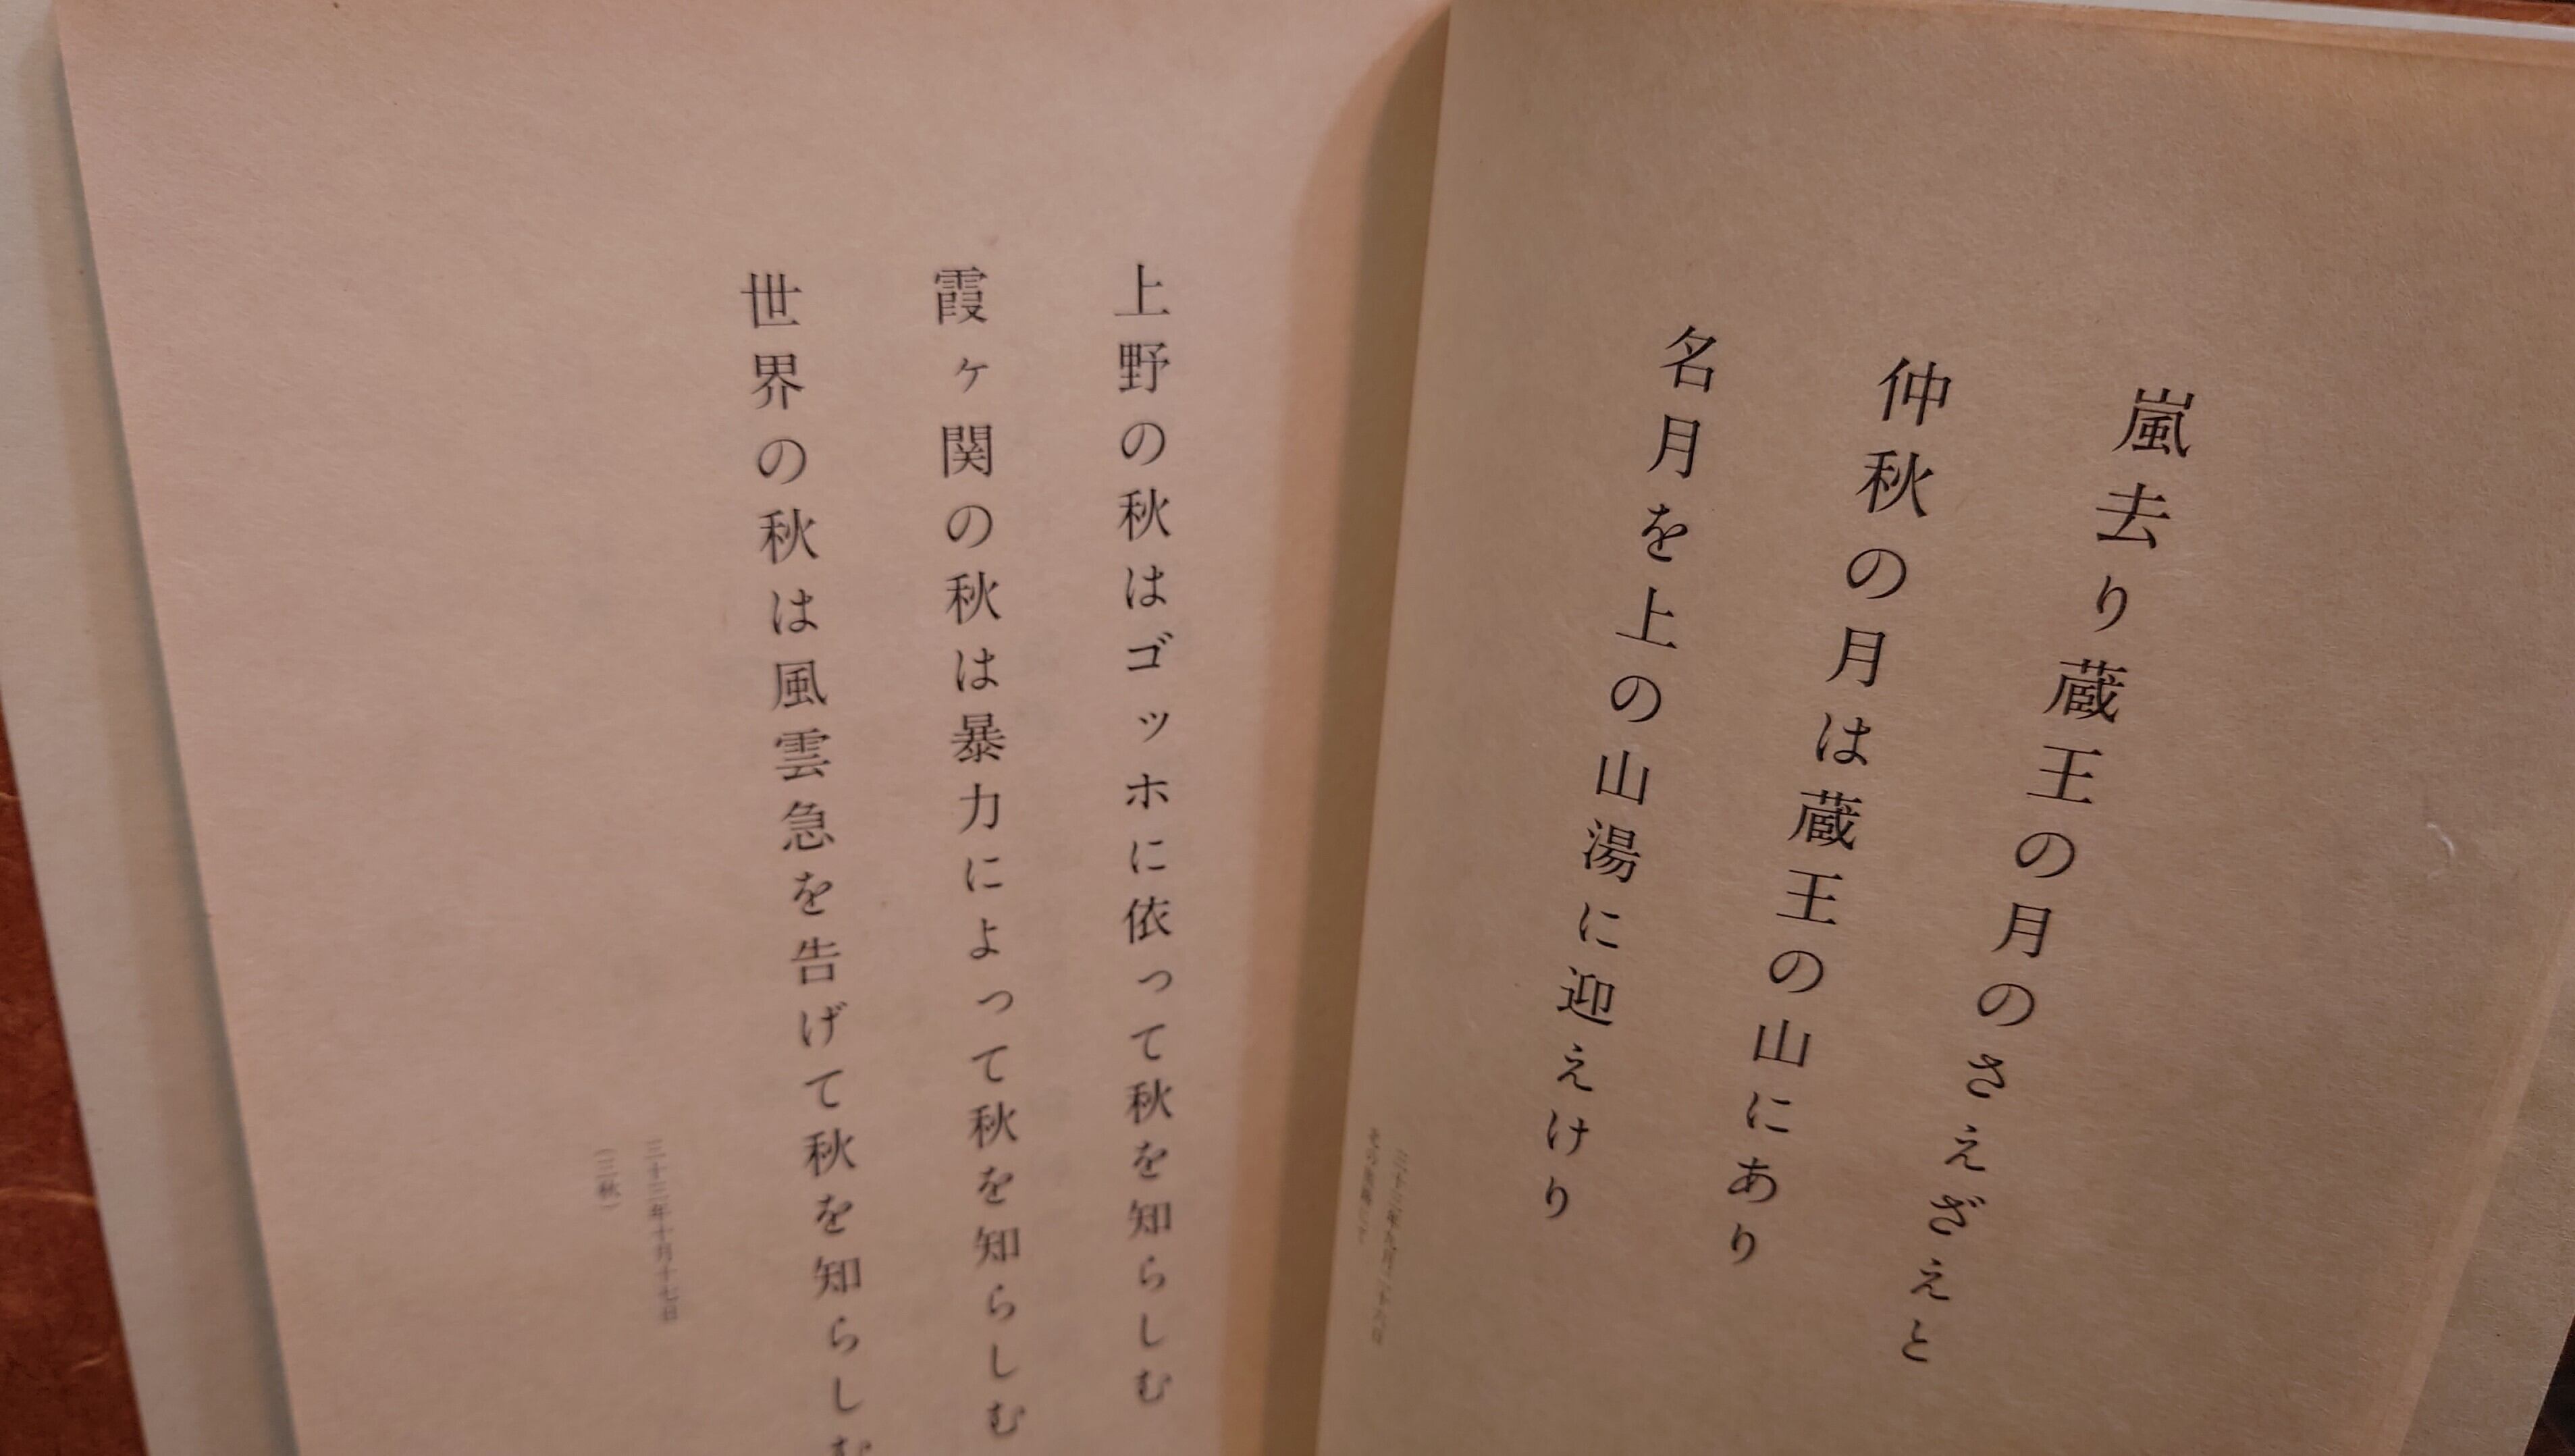 嵐去り蔵王の月のさえざえと
仲秋の月は蔵王の山にあり
名月を上の山湯に迎えけり
上野の秋はゴッホに依って秋を知らしむ
霞ヶ関の秋は暴力によって秋を知らしむ
世界の秋は風雲急を告げて秋を知らしむ
三十三年十月十七日
（三秋）